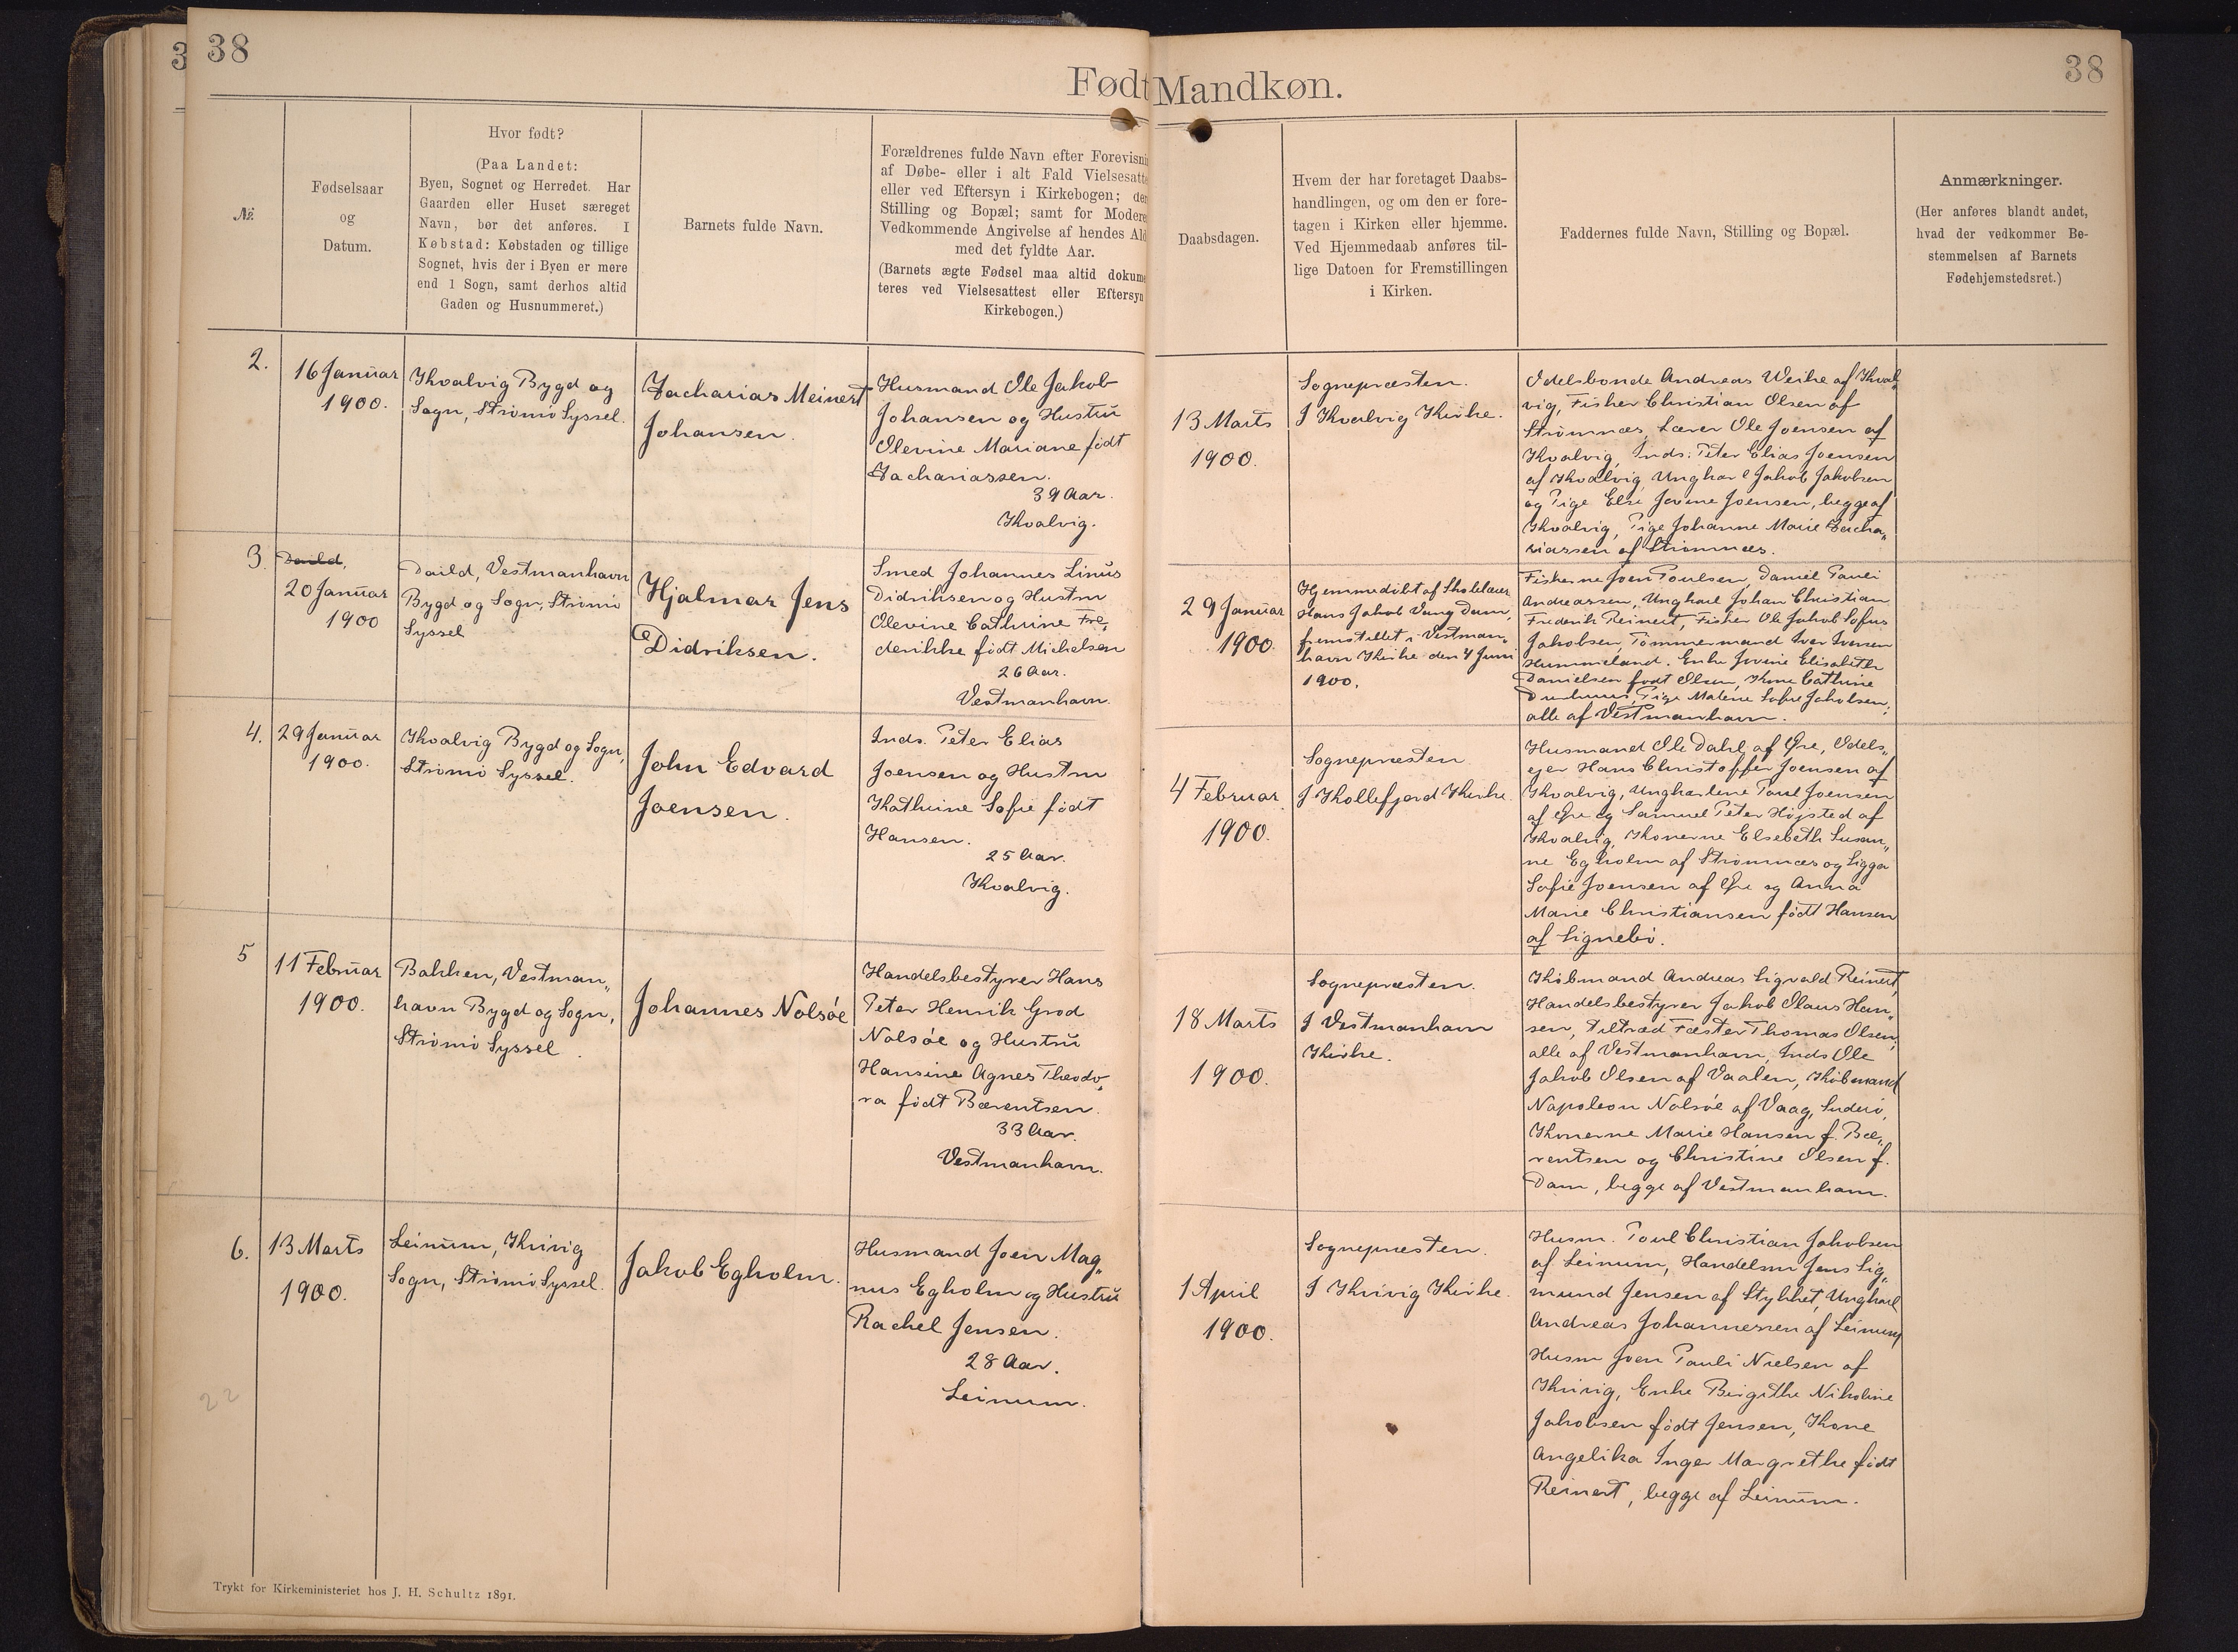 38
Født Mandkøn.
38
3
№
Fødselsaar
og
Datum.
Hvor født?
(Paa Landet:
Byen, Sognet og Herredet. Har
Gaarden eller Huset særeget
Navn, bør det anføres. I
Købstad: Købstaden og tillige
Sognet, hvis der i Byen er mere
end 1 Sogn, samt derhos altid
Gaden og Husnummeret.)
Barnets fulde Navn.
Forældrenes fulde Navn efter Forevisni
af Døbe- eller i alt Fald Vielsesatte
eller ved Eftersyn i Kirkebogen; der
Stilling og Bopæl; samt for Modere
Vedkommende Angivelse af hendes Ald
med det fyldte Aar.
(Barnets ægte Fødsel maa altid dokume
teres ved Vielsesattest eller Eftersyn
Kirkebogen.)
Daabsdagen.
Hvem der har foretaget Daabs-
handlingen, og om den er fore-
tagen i Kirken eller hjemme.
Ved Hjemmedaab anføres til-
lige Datoen for Fremstillingen
i Kirken.
Faddernes fulde Navn, Stilling og Bopæl.
Anmærkninger.
(Her anføres blandt andet,
hvad der vedkommer Be-
stemmelsen af Barnets
Fødehjemstedsret.)
2.
16 Januar
1900.
Kvalvig Bygd og
Sogn, Strömö Syssel.
Zacharias Meinert
Johansen.
Husmand Ole Jakob
Johansen og Hustru
Olevine Mariane født
Zachariassen.
39 Aar.
Kvalvig.
13 Marts
1900.
Sognepræsten.
I Kvalvig Kirke.
Odelsbonde Andreas Weihe af Kval„
vig, Fisker Christian Olsen af
Strömnæs, Lærer Ole Joensen af
Kvalvig, Inds. Peter Elias Joensen
af Kvalvig, Ungkarl Jakob Jakobsen
og Pige Else Jovine Joensen, begge af
Kvalvig, Pige Johanne Marie Zacha„
riassen af Strömnæs.
3.
Daild,
20 Januar
1900
Daild, Vestmanhavn
Bygd og Sogn, Strömö
Syssel
Hjalmar Jens
Didriksen.
Smed Johannes Linus
Didriksen og Hustru
Olevine Cathrine Fre„
derikke født Michelsen
26 Aar.
Vestmanhavn.
29 Januar
1900.
Hjemmedöbt af Skolelærer
Hans Jakob Vang Dam,
fremstillet i Vestman„
havn Kirke den 4 Juni
1900.
Fiskerne Joen Poulsen, Daniel Pauli
Andreassen, Ungkarl Johan Christian
Frederik Reinert, Fisker Ole Jakob Sofus
Jakobsen, Tömmermand Iver Iversen
Hummeland. Enke Jovine Elisabeth
Danielsen født Olsen, Kone Cathrine
Pige Malene Sofie Jakobsen,
alle af Vestmanhavn.
4.
29 Januar
1900.
Kvalvig Bygd og Sogn,
Strömö Syssel.
John Edvard
Joensen.
Inds. Peter Elias
Joensen og Hustru
Kathrine Sofie født
Hansen.
25 Aar.
Kvalvig.
4 Februar
1900.
Sognepræsten
I Kollefjord Kirke.
Husmand Ole Dahl af Øre, Odels„
ejer Hans Christoffer Joensen af
Kvalvig, Ungkarlene Poul Joensen
af Øre og Samuel Peter Højsted af
Kvalvig, Konerne Elsebeth Susan„
ne Egholm af Strömnæs og Sigga
Sofie Joensen af Øre og Anna
Marie Christiansen født Hansen
af Signebö.
5
11 Februar
1900.
Bakken, Vestman„
havn Bygd og Sogn,
Strömö Syssel.
Johannes Nolsóe
Handelsbestyrer Hans
Peter Henrik Grod
Nolsóe og Hustru
Hansine Agnes Theodo„
ra født Bærentsen.
33 Aar.
Vestmanhavn.
18 Marts
1900.
Sognepræsten.
I Vestmanhavn
Kirke.
Købmand Andreas Sigvald Reinert,
Handelsbestyrer Jakob Olaus Han„
sen, Aftræd. Fæster Thomas Olsen,
alle af Vestmanhavn, Inds Ole
Jakob Olsen af Vaalen, Købmand
Napoleon Nolsóe af Vaag, Suderö,
Konerne Marie Hansen f. Bæ„
rentsen og Christine Olsen f.
Dam, begge af Vestmanhavn.
6.
13 Marts
1900.
Leinum, Kvivig
Sogn, Strömö Syssel.
Jakob Egholm.
Husmand Joen Mag„
nus Egholm og Hustru
Rachel Jensen.
28 Aar.
Leinum.
1 April
1900.
Sognepræsten.
I Kvivig Kirke.
Husm. Poul Christian Jakobsen
af Leinum, Handelsm Jens Sig„
mund Jensen af Stykket, Ungkarl
Andreas Johannessen af Leinum,
Husm Joen Pauli Nielsen af
Kvivig, Enke Birgithe Nikoline
Jakobsen født Jensen, Kone
Angelika Inger Margrethe født
Reinert, begge af Leinum.
22
Trykt for Kirkeministeriet hos J. H. Schultz 1891.